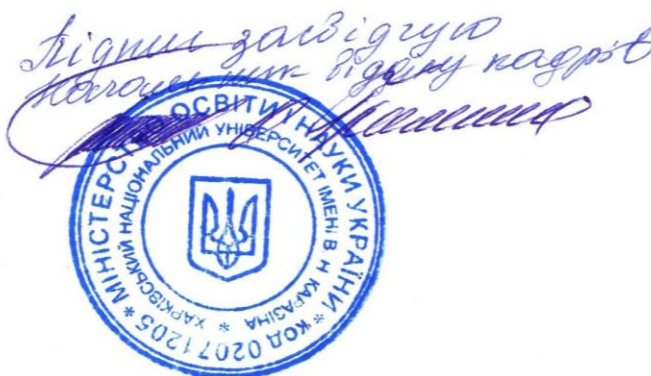 Підпис засвідчую
Начальник відділу кадрів
* МІНІСТЕРСТВО ОСВІТИ І НАУКИ УКРАЇНИ * КОД 02071205
* ХАРКІВСЬКИЙ НАЦІОНАЛЬНИЙ УНІВЕРСИТЕТ ІМЕНІ В Н КАРАЗІНА